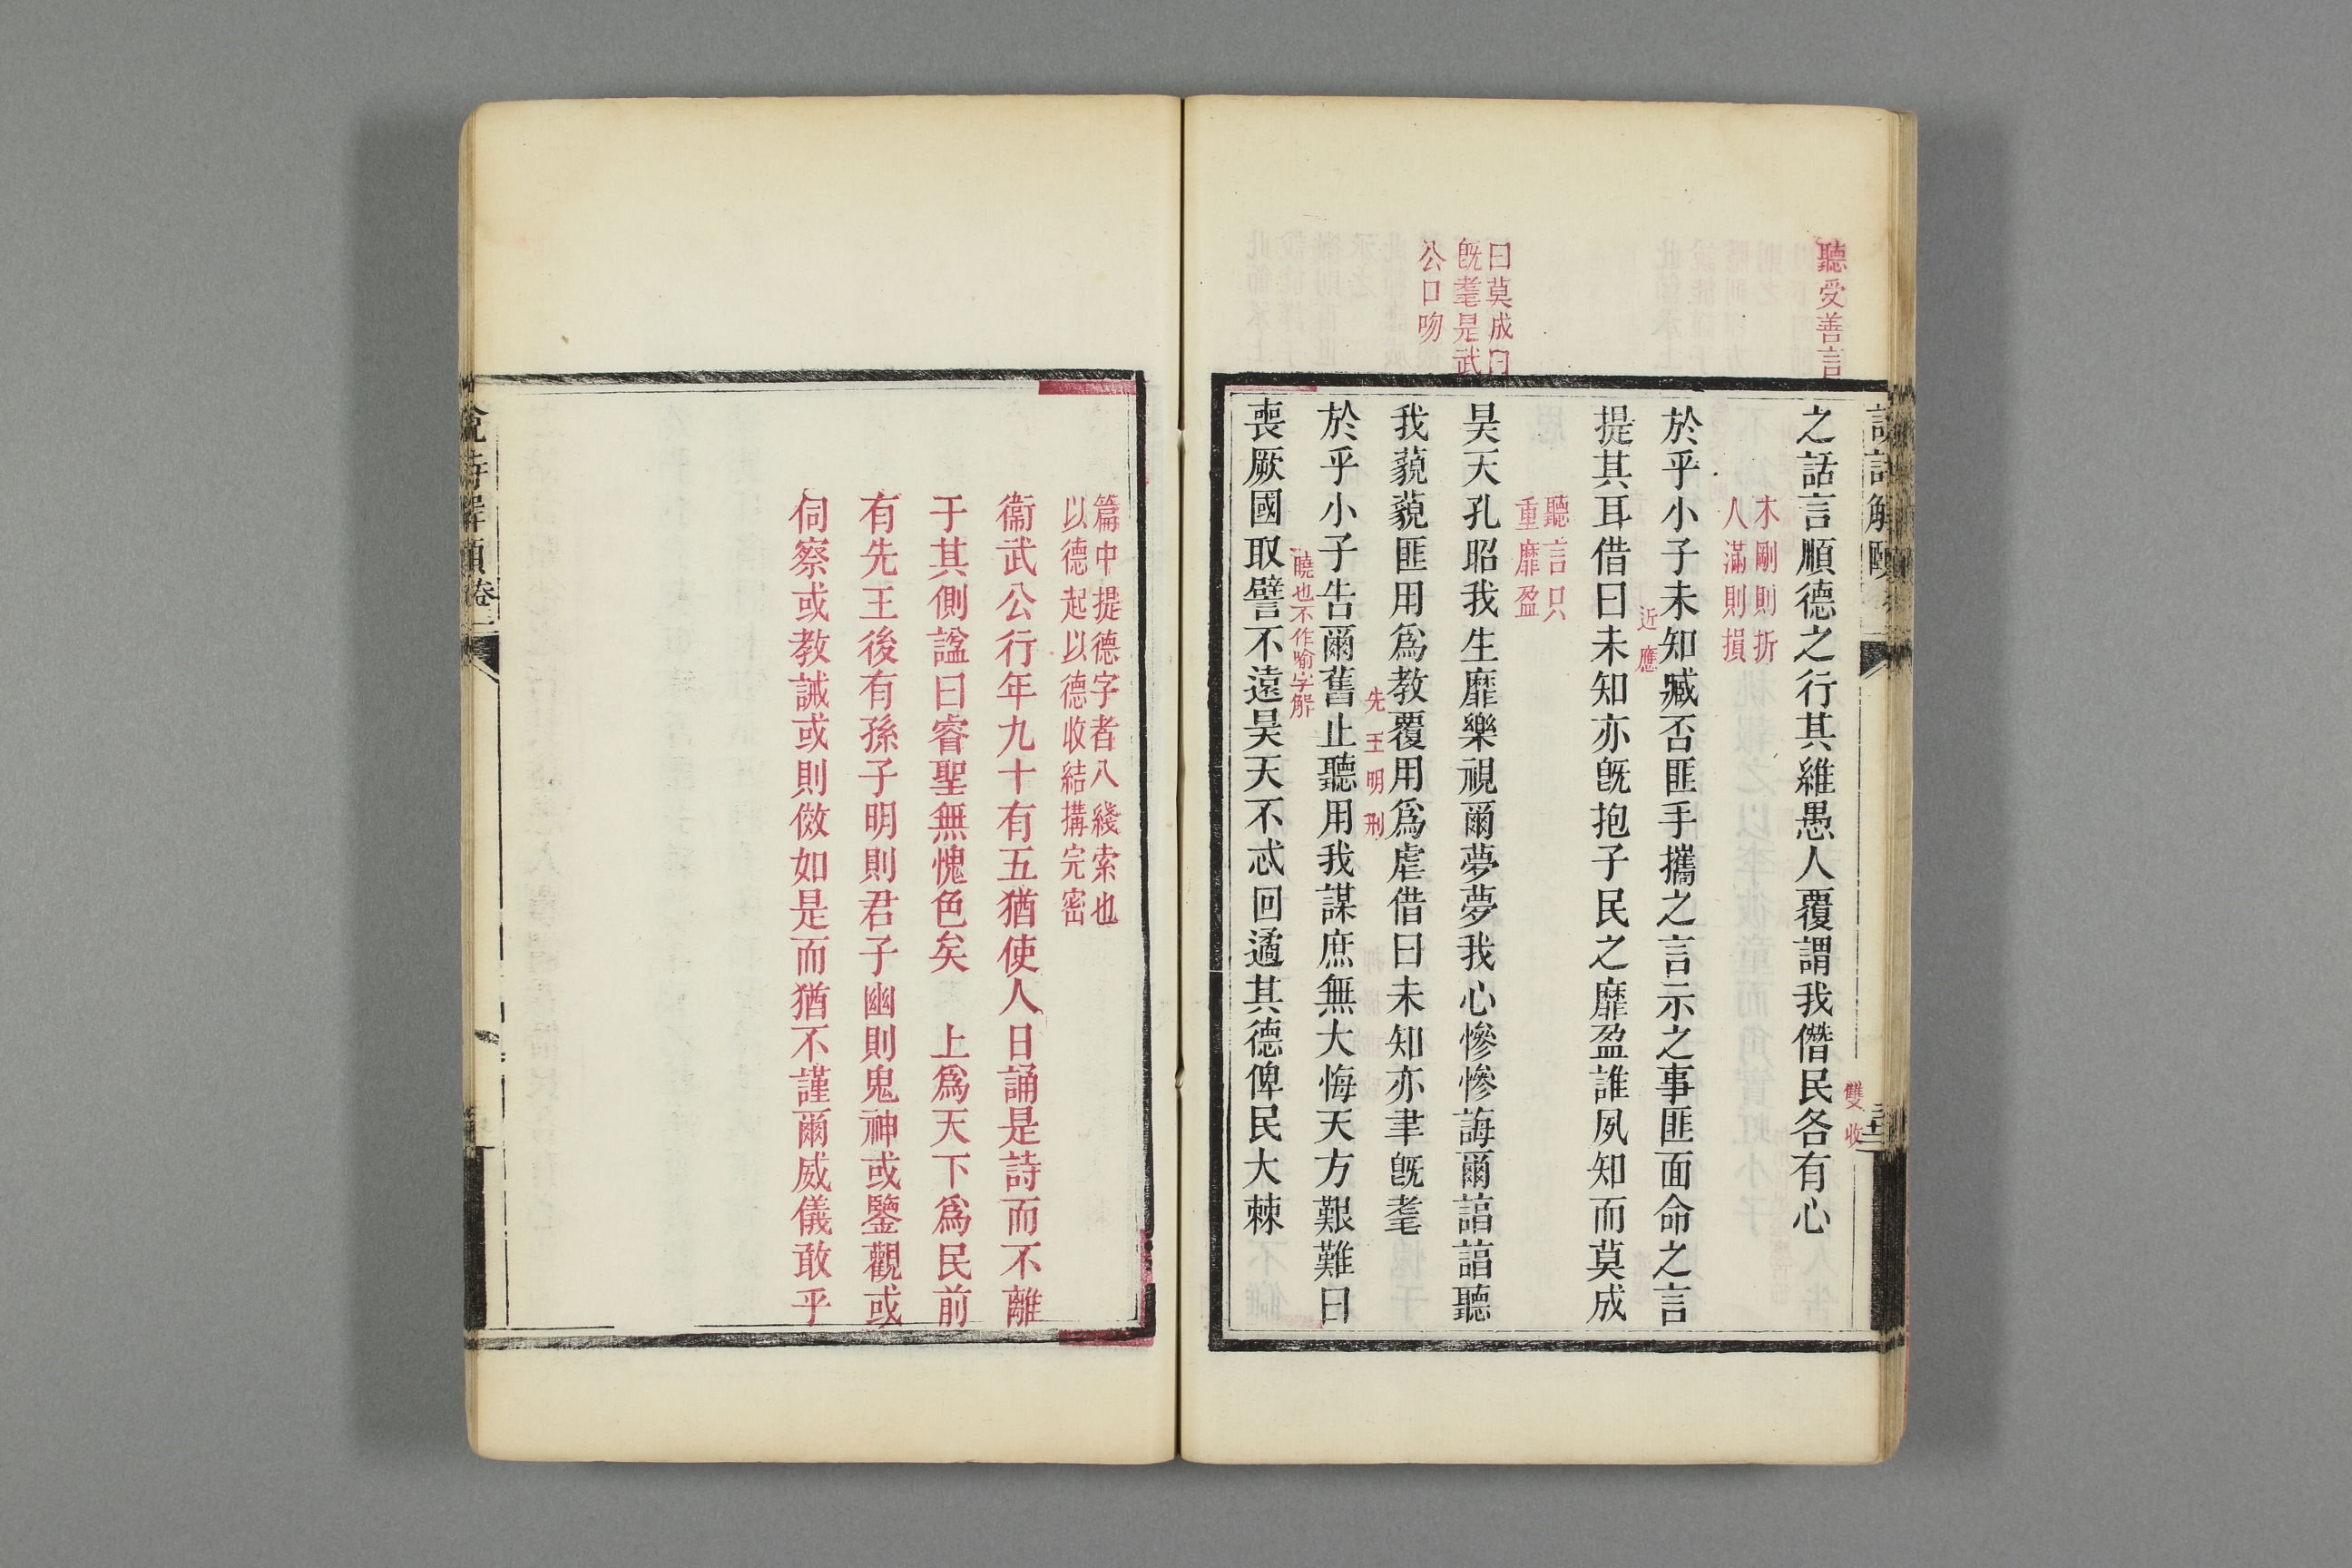 聽受善言
曰莫成曰
旣耄是武
公口吻
之話言順德之行其維愚人覆謂我僭民各有心
雙收
木剛則折
人滿則損
於乎小子未知臧否匪手攜之言示之事匪面命之言
近應
提其耳借曰未知亦旣抱子民之靡盈誰夙知而莫成
聽言只
重靡盈
昊天孔昭我生靡樂視爾夢夢我心慘慘誨爾諄諄聽
我藐藐匪用爲教覆用爲虐借曰未知亦聿旣耄
先王明刑
於乎小子告爾舊止聽用我謀庶無大悔天方艱難曰
曉也不作喻字解
喪厥國取譬不遠昊天不忒回遹其德俾民大棘
篇中提德字者八綫索也
以德起以德收結搆完密
衞武公行年九十有五猶使人日誦是詩而不離
于其側諡曰睿聖無愧色矣　上爲天下爲民前
有先王後有孫子明則君子幽則鬼神或鑒觀或
伺察或教誡或則傚如是而猶不謹爾威儀敢乎
說詩解頤卷二